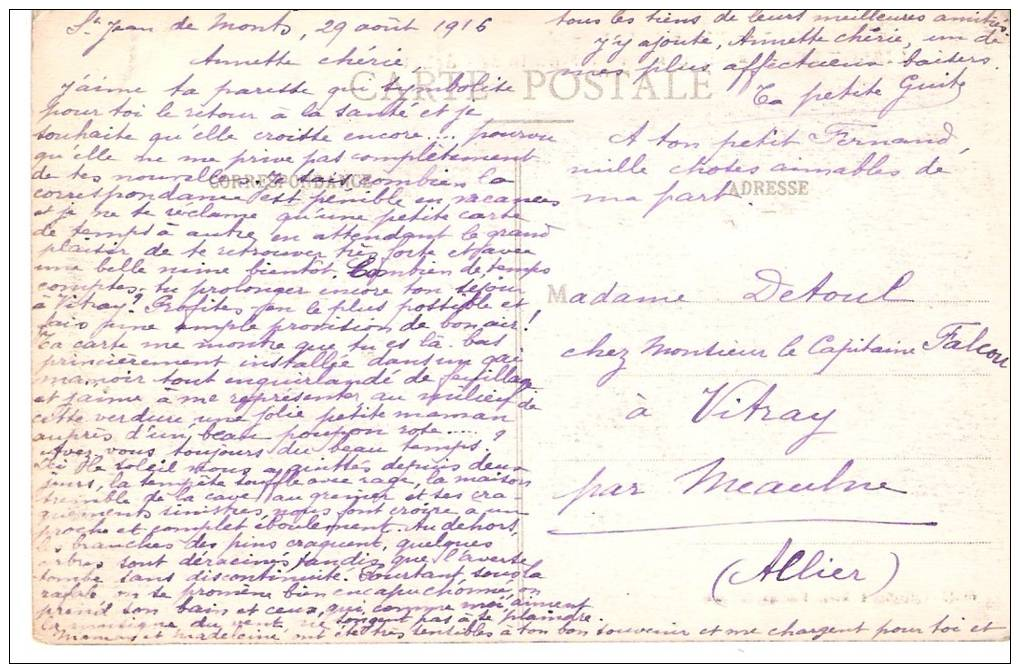 St Jean de Monts, 29 août 1916
Annette chérie,
CARTE POSTALE
j'aime ta paresse qui symbolise
pour toi le retour à la santé et je
souhaite qu'elle croisse encore.... pourvu
qu'elle ne me prive pas complètement
de tes nouvelles. Je sais combien la
CORRESPONDANCE
correspondance est pénible en vacances
et je ne te réclame qu'une petite carte
de temps à autre, en attendant le grand
plaisir de te retrouver très forte et avec
une belle mine bientôt. Combien de temps
comptes-tu prolonger encore ton séjour
à Vitray? Profites-en le plus possible et
fais une ample provision de bon air!
Ta carte me montre que tu es là-bas
princièrement installée dans un gai
manoir tout enguirlandé de feuillage
et j'aime à me représenter au milieu de
cette verdure une jolie petite maman
auprès d'un beau poupon rose.....
Avez-vous toujours du beau temps?
Ici le soleil nous a quittés depuis deux
jours, la tempête souffle avec rage, la maison
tremble de la cave au grenier et ses cra-
quements sinistres nous font croire à un
proche et complet éboulement. Au dehors,
les branches des pins craquent, quelques
arbres sont déracinés tandis que l'averse
tombe sans discontinuité. Pourtant, sous la
rafale on se promène bien encapuchonné, on
prend son bain et ceux qui, comme moi, aiment
la musique du vent, ne songent pas à se plaindre.
Maman et Madeleine, ont été très sensibles à ton bon souvenir et me chargent pour toi et
tous les tiens de leurs meilleures amitiés.
J'y ajoute, Annette chérie, un de
mes plus affectueux baisers.
Ta petite Guite
A ton petit Fernand,
mille choses aimables de
ma part.
ADRESSE
Madame Detoul
chez Monsieur le Capitaine Falcou
à Vitray
par Meaulne
(Allier)